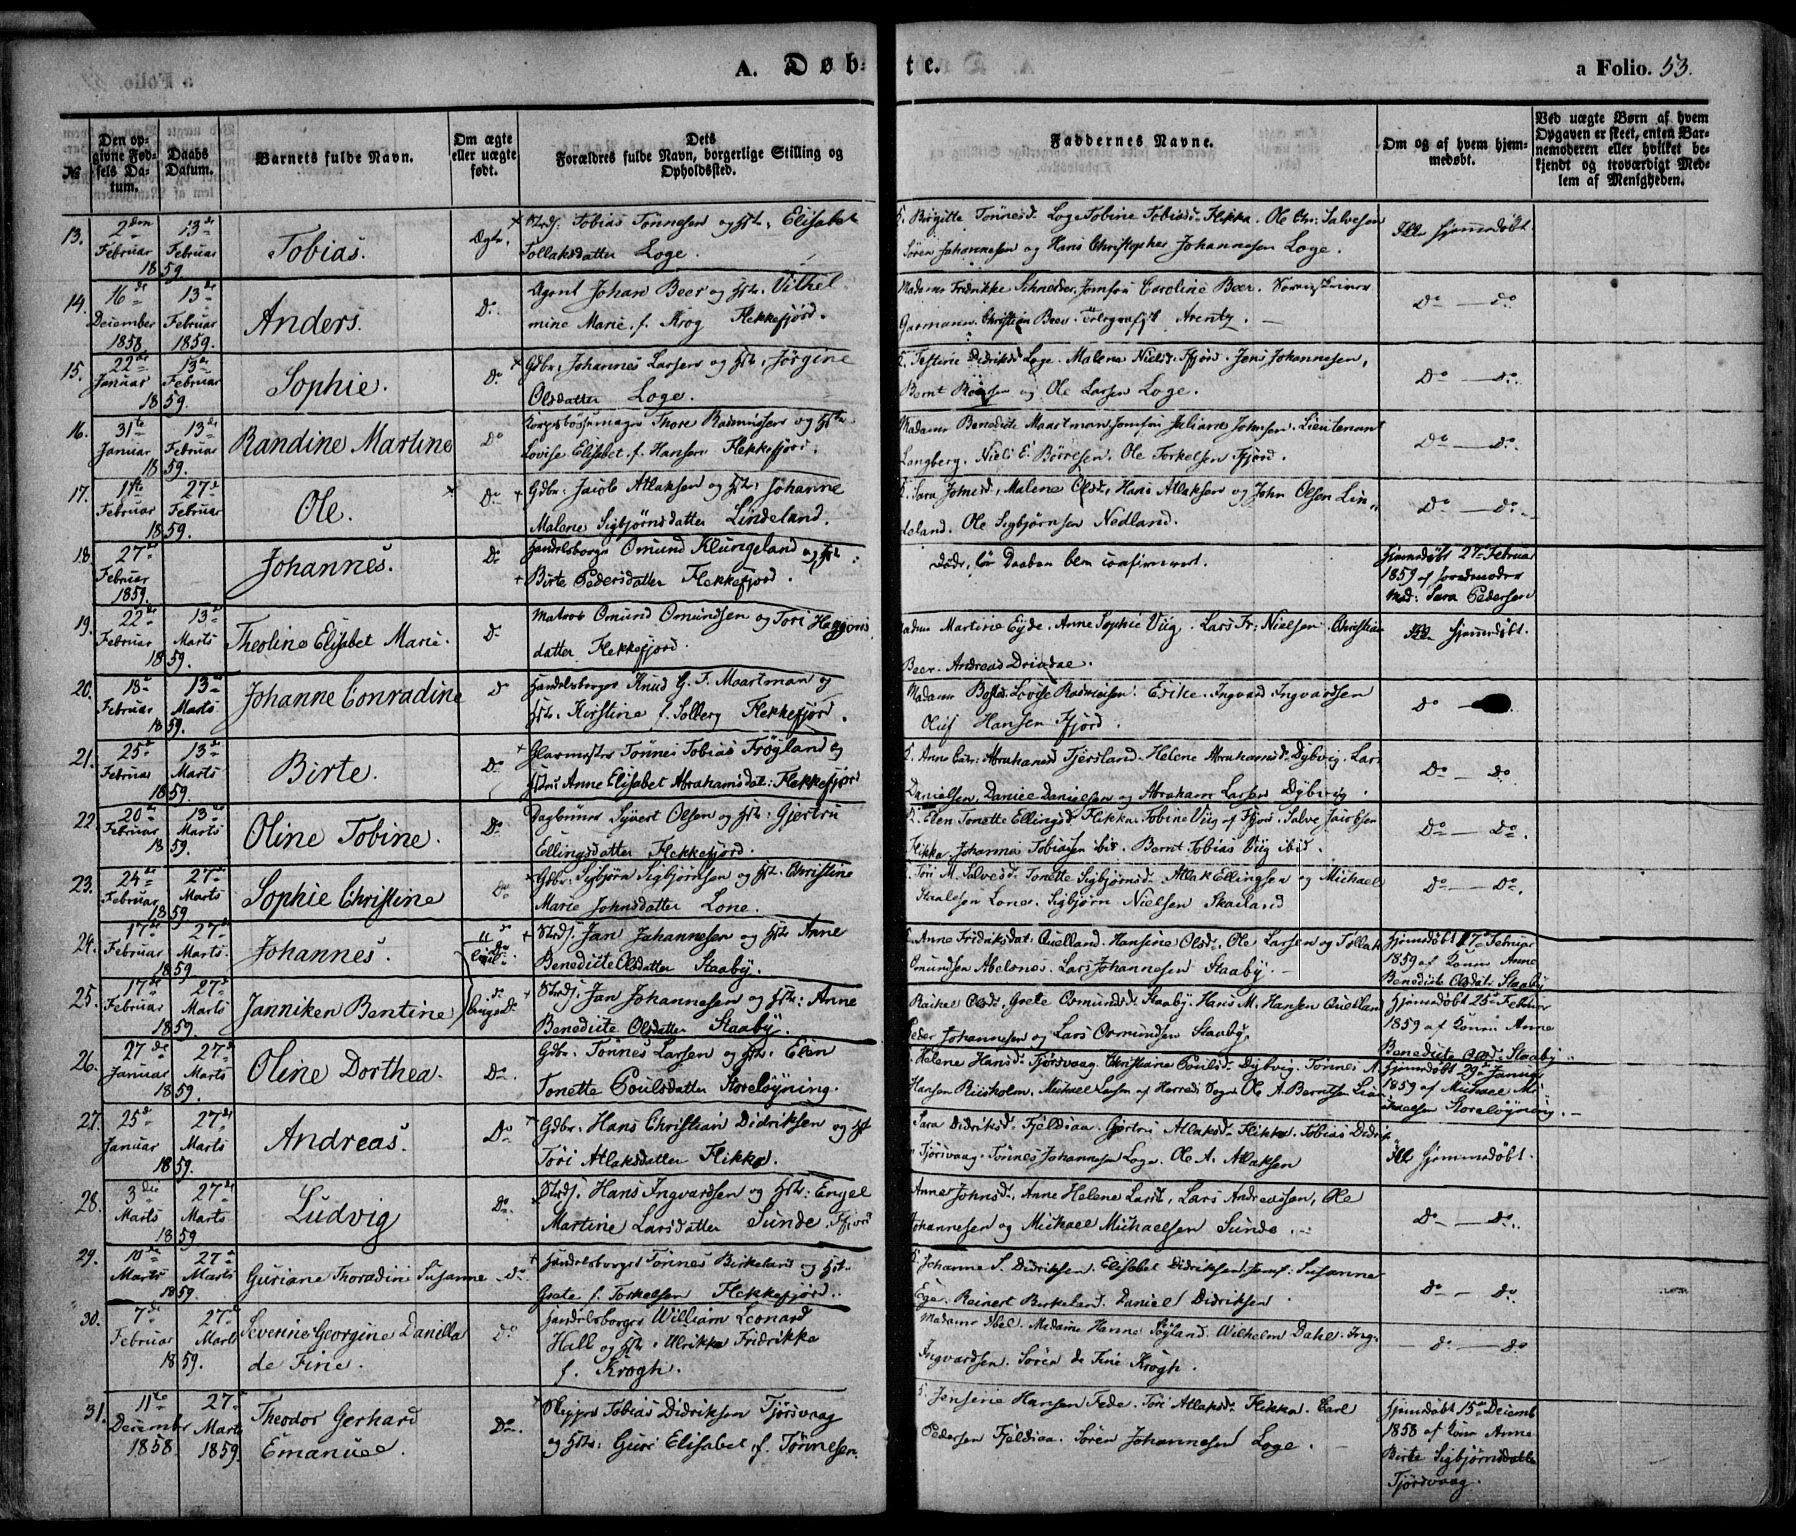 A. Døbte.
a Folio. 53.
№
Den opgivne Fødsels Datum.
Daabs Datum.
Barnets fulde Navn.
Om ægte eller uægte født.
Dets Forældres fulde Navn, borgerlige Stilling og Opholdssted.
Faddernes Navne.
Om og af hvem hjemmedøbt.
Ved uægte Børn af hvem Opgaven er skeet, enten Barnemoderen eller hvilket bekjendt og troværdigt Medlem af Menigheden.
13. 2den Februar 1859 13de Februar Tobias. Ægte. Strdsj. Tobias Tønnesen og Hst. Elisabet
Tollaksdatter Loge.
Birgitte Tønnesd. Loge Tobine Tobiasd. Flikka. Ole Chr. Salvesen
Søren Johannesen og Hans Christopher Johannesen Loge.
Ikke hjemmedøbt.
14. 16de December 1858 13de Februar 1859. Anders. Do. Agent Johan Beer og Hst. Vilhel
mine Marie f. Krog Flekkefjord.
Madame Fridrikke Schnedler Jomfru Caroline Beer. Sorenskriver
Garmann. Christian Beer. Arentz.
Do — do.
15. 22de Januar 1859. 13de Februar Sophie. Do Gdbr. Johannes Larsen og Hst. Jørgine
Olsdatter Loge.
Didriksd. Loge. Malena Nielsd. Fjord. Jens Johannesen,
Bernt og Ole Larsen Loge.
Do — Do.
16. 31te Januar 1859. 13de Februar Randine Martine Do Korpsbøssemager Thore Rasmussen og Hstr
Lovise Elisabet f. Hansen Flekkefjord.
Madame Benedicte Maartman Jomfru Juliane Johnsen. Lieutenant
Langberg. Niels E. Børresen. Ole Torkelsen Fjord.
Do — Do.
17. 1ste Februar 1859 27de Februar Ole. Do Gdbr. Jacob Atlaksen og Hst. Johanne
Malene Sigbjørnsdatter Lindeland.
Sara Johnsd., Malene Olsd., Hans Atlaksen og John Olsen Lin
deland. Ole Sigbjørnsen Nedland.
Do — Do.
18 27de Februar 1859. Johannes. Do Handelsborger Omund Klungeland og Hst
Birte Pedersdatter Flekkefjord.
Døde, før Daaben blev confirmeret.
Hjemmedøbt 27de Februar
1859 af Jordmoder
Mad: Sara Pedersen
19. 22de Februar 1859. 13de Marts Theoline Elisabet Marie. Do Matros Omund Omundsen og Tori Haagens
datter Flekkefjord.
Martine Eyde. Anne Sophie Viig. Lars Fr. Nielsen. Christian
Beer. Andreas Drivdae.
Ikke hjemmedøbt.
20. 18de Februar 1859. 13de Marts Johanne Conradine Do Handelsborger Knud G. F. Maartman og
Hst. Kirstine f. Solberg Flekkefjord.
Madame Lovise Rasmusen. Erike. Ingvard Ingvardsen
Oluf Hansen Fjord.
Do —
21. 25de Februar 1859. 13de Marts Birte. Do Glarmester Tønnes Tobias Frøyland og
Hstru Anne Elisabet Abrahamsdat: Flekkefjord
Anne Cat: Abrahamsd Tjersland. Helene Abrahamsd. Dybvig. Lars
Danielsen, Daniel Danielsen og Abraham Larsen Dybvig.
Do — Do
22 20de Februar 1859. 13de Marts Oline Tobine. Do Dagbrüner Syvert Olsen og Hst: Gjertru
Ellingsdatter Flekkefjord.
Elen Tonette Ellingsd. Flikka. Tobine Viig af Fjord. Salve Jacobsen
Flikka. Johannes Tobiasen ibid. Bernt Tobias Viig ibid.
Do — Do.
23. 24de Februar 1859 27de Marts Sophie Christine Do Gdbr. Sigbjørn Sigbjørnsen og Hst. Christine
Marie Johnsdatter Lone.
Tori M. Salvesd. Tonette Sigbjørnsd. Atlak Ellingsen og Michael
Staalesen Lone. Sigbjørn Nielsen Skaaland
Do — Do.
24. 17de Februar 1859. 27de Marts. Johannes. Do Strdsj. Jan Johannesen og Hst. Anne
Benedicte Olsdatter Staaby.
Anne Fridriksdat: Quelland. Hansine Olsd., Ole Larsen og Tollak
Omundsen Abelsnes. Lars Johannesen Staaby.
Hjemmedøbt 17de Februar
1859 af Konen Anne
Benedicte Olsdat: Staaby
25. 17de Februar 1859. 27de Marts Janniken Bentine Do Strdsj. Jan Johannesen og Hst: Anne
Benedicte Olsdatter Staaby.
Rakel Olsd., Grete Osmundsd. Staaby. Hans M. Hansen Quelland
Peder Johannesen og Lars Osmundsen Staaby.
Hjemmedøbt 25de Februar
1859 af Konen Anne
Benedicte Olsd. Staaby
26. 27de Januar 1859. 27de Marts Oline Dorthea. Do. Gdbr. Tønnes Larsen og Hst. Elen
Tonette Poulsdatter Storeløyning.
Helene Hansd. Tjørsvaag. Christiane Poulsd. Dybvig. Tønnes A
Hansen Michael Larsen af Herreds Sogn Ole A. Berntsen
Hjemmedøbt 29de Januar
1859 af Michael Mi
chaelsen Storeløyning.
27. 25de Januar 1859 27de Marts Andreas. Do Gdbr. Hans Christian Didriksen og Hst
Tori Atlaksdatter Flikka.
Sara Didriksd. Fjeldsaa. Gjertru Atlaksd. Flikka. Tobias Didrik
Tjørsvaag. Tønnes Johannesen Loge. Ole A. Atlaksen
Ikke hjemmedøbt.
28. 3die Marts 1859 27de Marts Ludvig Do. Strdsj. Hans Ingvardsen og Hst: Engel
Martine Larsdatter Sunde. Fjord
Anne Johnsd., Anne Helene Larsd., Lars Andreassen, Ole
Johannesen og Mickael Michaelsen Sunde.
Do — Do.
29. 10de Marts 1859. 27de Marts Guriane Thoradine Susanne Do Handelsborger Tønnes Birkeland og Hst.
Grete f. Torkelsen Flekkefjord.
Johanne S. Didriksen. Elisabet Didriksen. Jomf: Susanne
Ege. Reinert Birkeland. Daniel Didriksen.
Do — Do.
30. 7de Februar 1859. 27de Marts Severine Georgine Daniella
de Fine. Do Handelsborger William Leonard
Hall og Hst. Ulrikke Fridrikke
f. Krogh.
Madame Abel. Madame Hanne Søyland. Wilhelm Dahl. Ing.
Ingvardsen. Søren de Fine Krogh.
do — do
31. 11te December 1858 27de Marts 1859. Theodor Gerhard
Emanuel. Do. Skipper Tobias Didriksen Tjørsvaag
og Hst: Guri Elisabet f. Tønnesen
Jensine Hansen Fede. Tori Atlaksd. Flikka. Carl
Pedersen Fjeldsaa. Søren Johannesen Loge.
Hjemmedøbt 15de Decemb
1858 af Kone Anne
Birte Sigbjørnsdatter
Tjørsvaag.